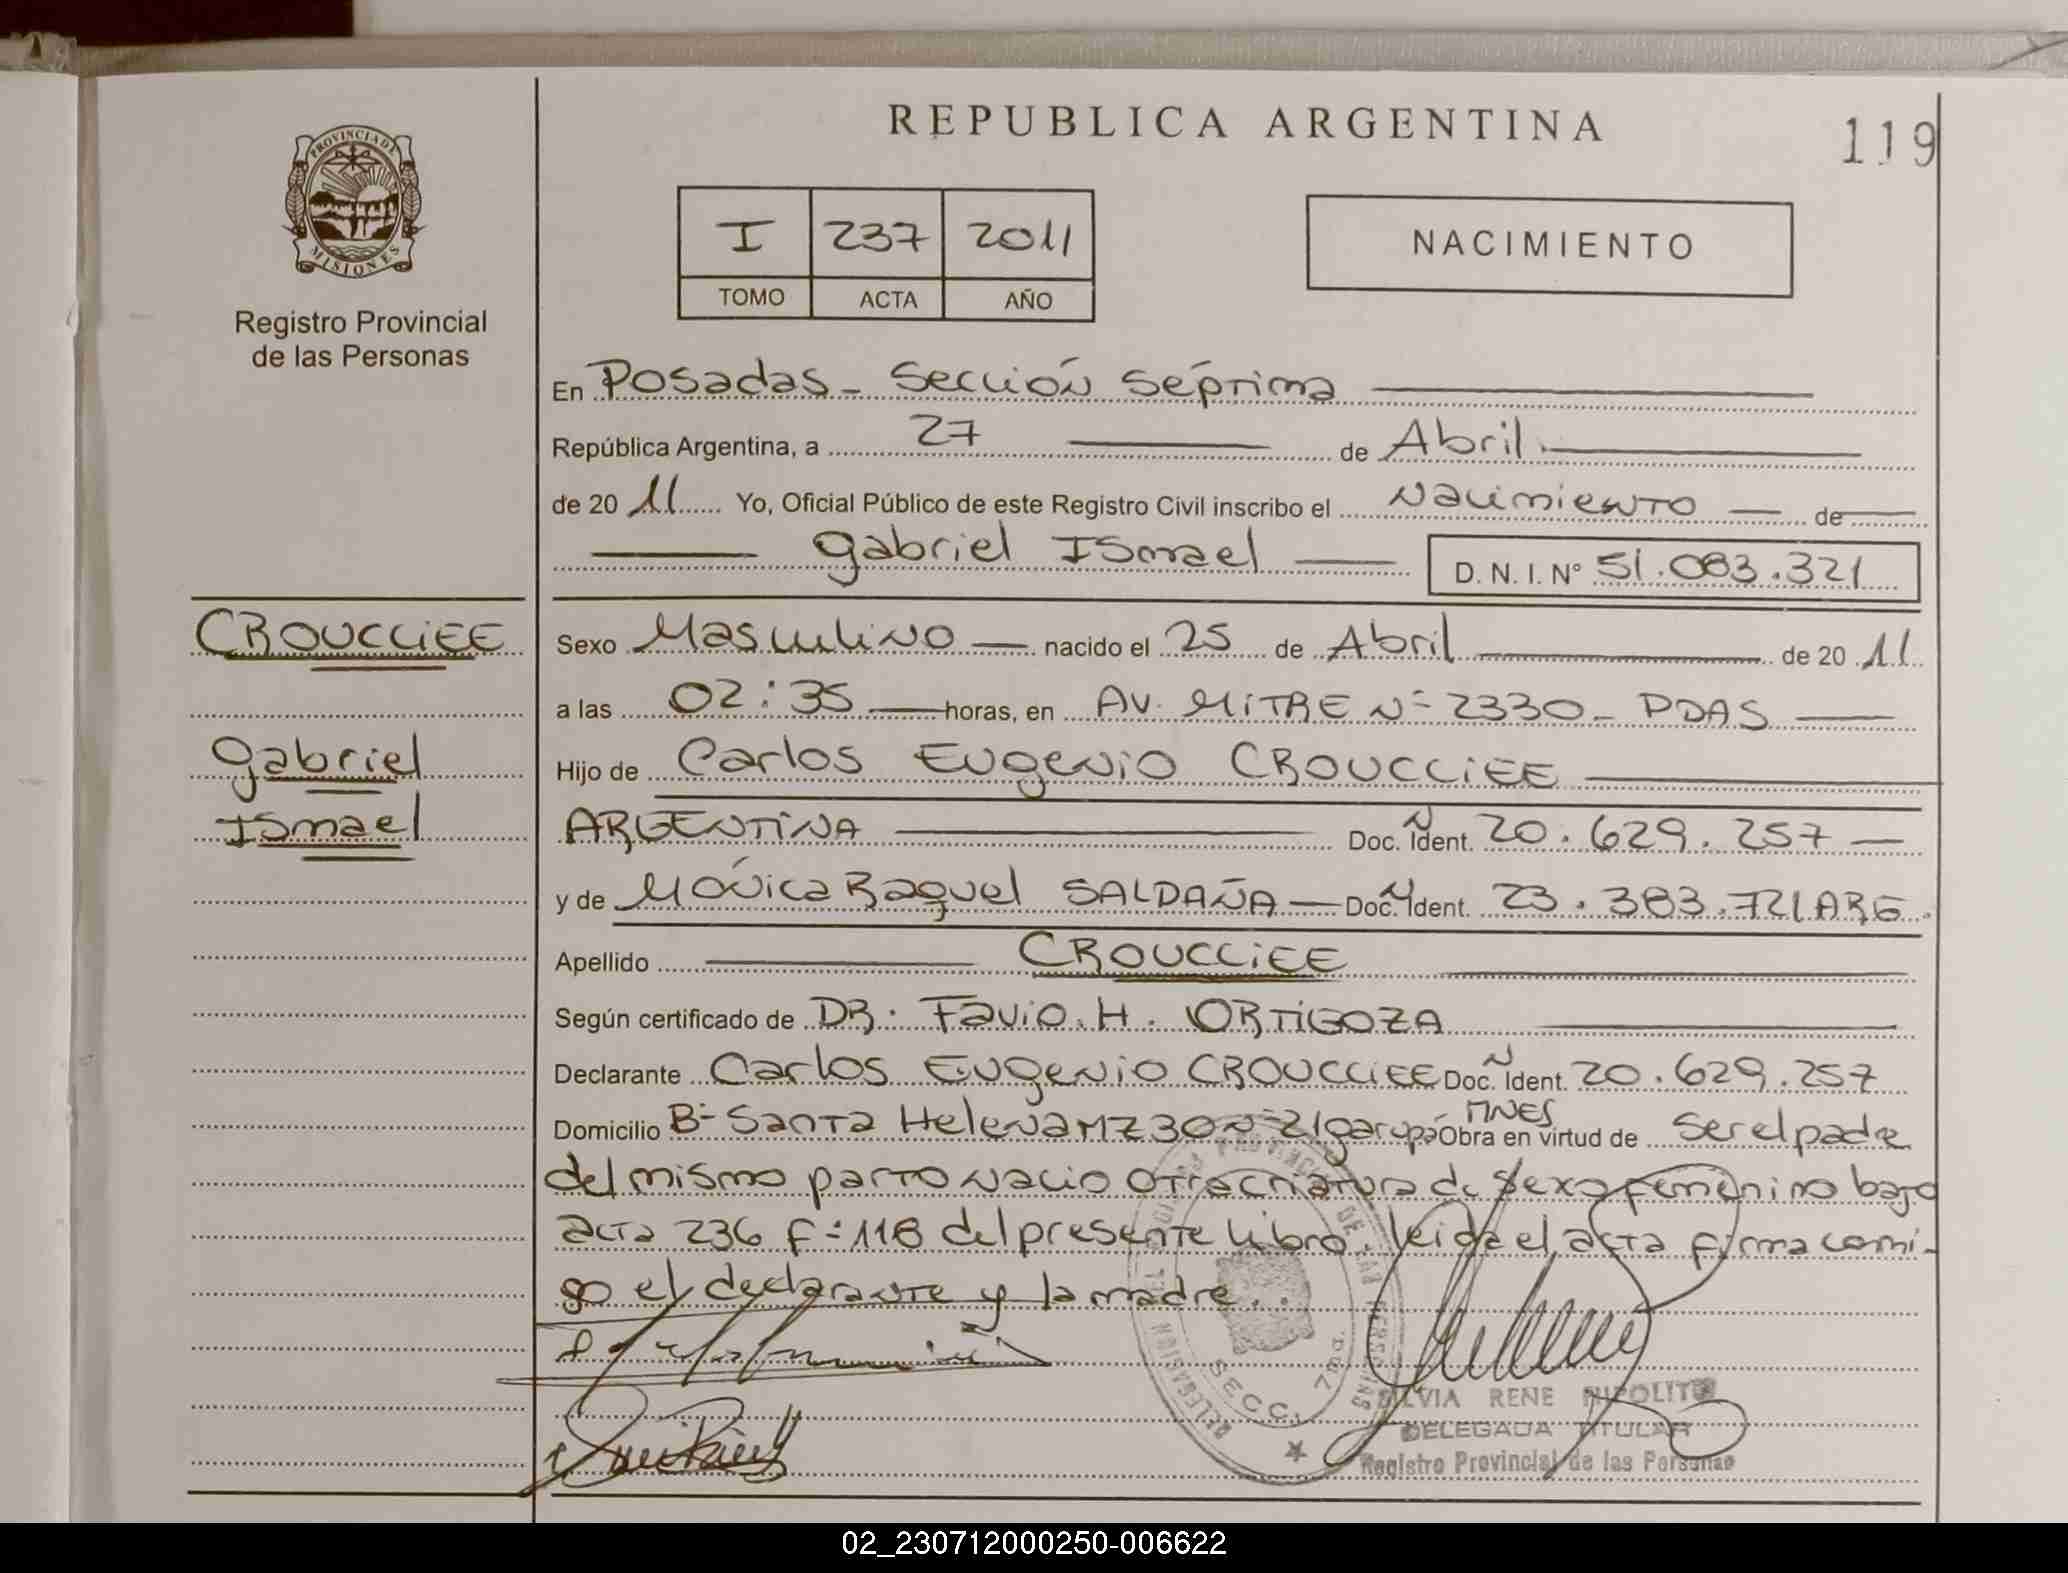 PROVINCIA DE
MISIONES
Registro Provincial
de las Personas
CROUCCIEE
Gabriel
Ismael
REPUBLICA ARGENTINA
119
I 237 2011
TOMO ACTA AÑO
NACIMIENTO
En Posadas - Sección Séptima
República Argentina, a 27 de Abril
de 20 11 Yo, Oficial Público de este Registro Civil inscribo el Nacimiento de
Gabriel Ismael D. N. I. N° 51.083.321
Sexo Masculino nacido el 25 de Abril de 20 11
a las 02:35 horas, en AV. MiTRE Nº 2330 - PDAS
Hijo de Carlos Eugenio CROUCCiEE
ARGENTiNA Doc. N Ident. 20.629.257
y de Mónica Raquel SALDAÑA Doc. N Ident. 23.383.721 ARG.
Apellido CROUCCiEE
Según certificado de DR. Favio. H. ORTiGOZA
Declarante Carlos Eugenio CROUCCiEE Doc. N Ident. 20.629.257
Domicilio Bº Santa Helena MZ 30 Nº 21 garupá MNES Obra en virtud de Ser el padre
del mismo parto nacio otra criatura de sexo femenino bajo
acta 236 Fº 118 del presente libro. leida el acta firma comi-
go el declarante y la madre..
SECC. 7ma.
SILVIA RENE RIPOLITO
DELEGADA TITULAR
Registro Provincial de las Personas
02_230712000250-006622